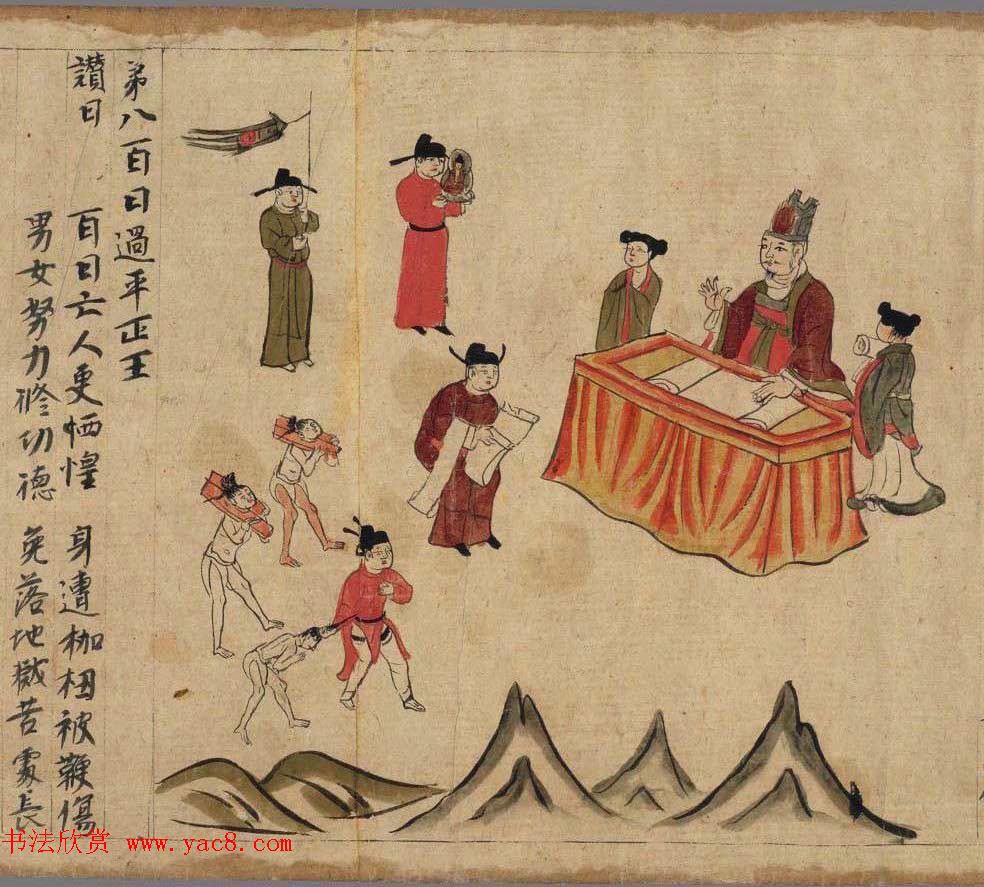 第八百日過平正王
讃曰 百日亡人更恓惶 身遭枷杻被鞭傷
男女努力修功德 免落地獄苦處長
书法欣赏 www.yac8.com